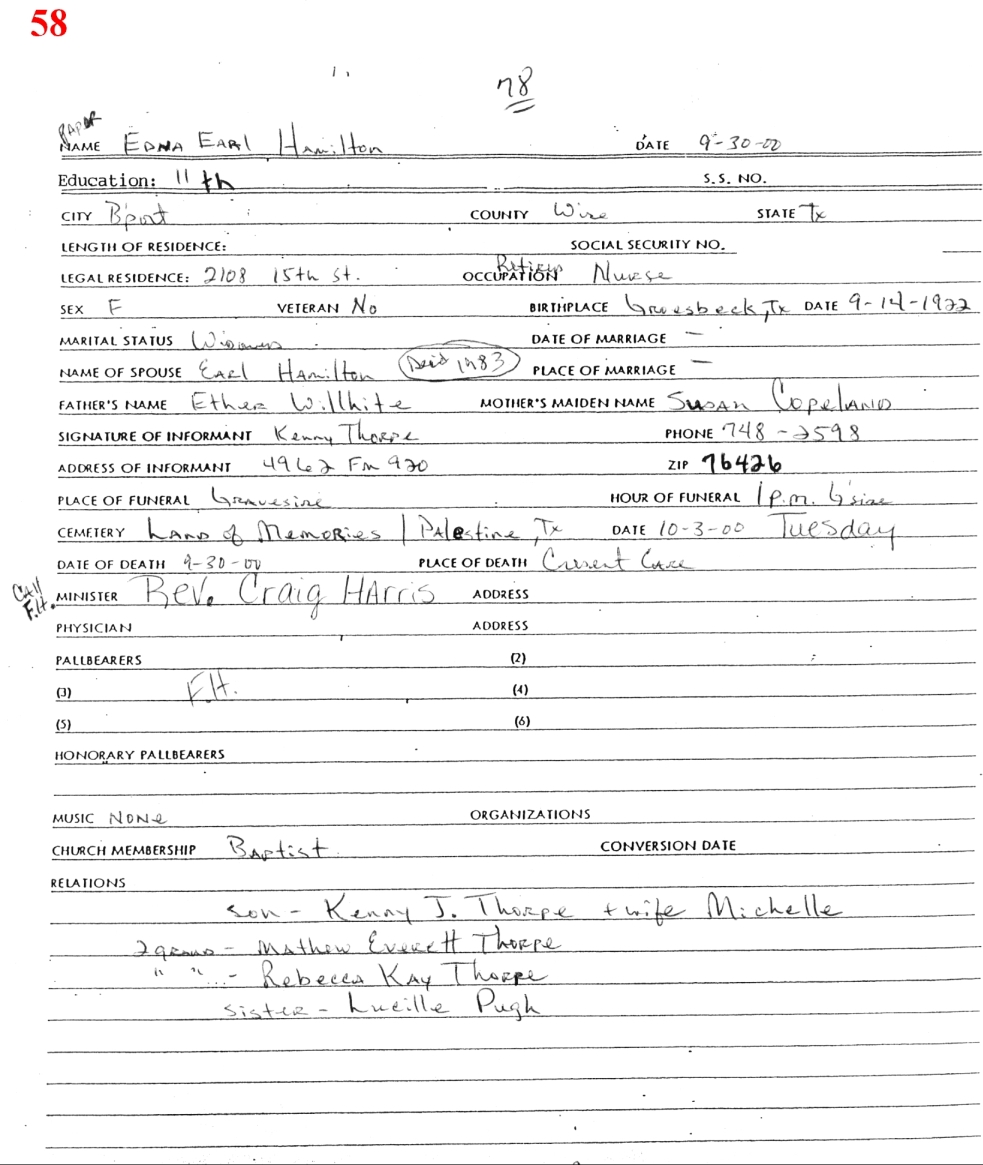 58
78
PAPER
NAME EDNA EARL Hamilton DATE 9-30-00
Education: 11th S.S. NO.
CITY B'port COUNTY Wise STATE Tx
LENGTH OF RESIDENCE: SOCIAL SECURITY NO.
LEGAL RESIDENCE: 2108 15th St. OCCUPATION Retired Nurse
SEX F VETERAN No BIRTHPLACE Groesbeck, Tx DATE 9-14-1922
MARITAL STATUS Widowed DATE OF MARRIAGE —
NAME OF SPOUSE EARL Hamilton (Dec'd 1983) PLACE OF MARRIAGE —
FATHER'S NAME Ether Willhite MOTHER'S MAIDEN NAME SUSAN COPELAND
SIGNATURE OF INFORMANT Kenny Thorpe PHONE 748-2598
ADDRESS OF INFORMANT 4962 Fm 920 ZIP 76426
PLACE OF FUNERAL Graveside HOUR OF FUNERAL 1 p.m. G'side
CEMETERY LAND of MEMORIES | PALestine, Tx DATE 10-3-00 Tuesday
DATE OF DEATH 9-30-00 PLACE OF DEATH Care
CAll F.H. MINISTER REV. Craig HArris ADDRESS
PHYSICIAN ADDRESS
PALLBEARERS (2)
(3) F.H. (4)
(5) (6)
HONORARY PALLBEARERS
MUSIC NONE ORGANIZATIONS
CHURCH MEMBERSHIP BAptist CONVERSION DATE
RELATIONS
son - Kenny J. Thorpe + wife Michelle
2 grand - Mathew Everett Thorpe
" " - Rebecca KAY Thorpe
sister - Lucille Pugh